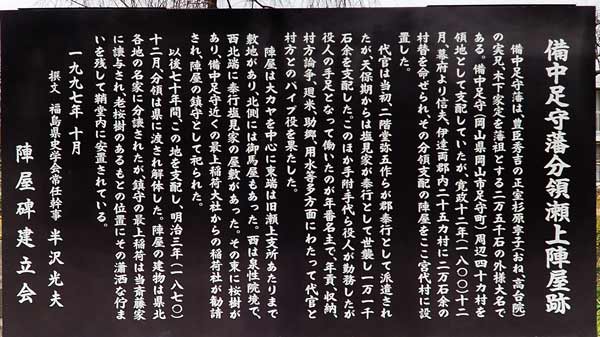 備中足守藩分領瀬上陣屋跡
備中足守藩は、豊臣秀吉の正室杉原寧子(おね、高台院)
の実兄、木下家定を藩祖とする二万五千石の外様大名で
ある。備中足守(岡山県岡山市足守町)周辺四十カ村を
領地として支配していたが、寛政十二年(一八〇〇)十二
月、幕府より信夫、伊達両郡内二十五カ村に二万石余の
村替を命ぜられ、その分領支配の陣屋をここ宮代村に設
置した。
代官は当初、二階堂弥五作らが郡奉行として派遣され
たが、天保期からは塩見家が奉行として世襲し一万一千
石余を支配した。このほか手附手代ら役人が勤務したが
役人の手足となって働いたのが年番名主で、年貢、収納
村方論争、廻米、助郷、用水等多方面にわたって代官と
村方とのパイプ役を果たした。
陣屋は大カヤを中心に東端は旧瀬上支所あたりまで
敷地があり、北側には御馬屋もあった。西は東性院境で、
西北端に奉行塩見家の屋敷があった。その東に桜樹が
あり、備中足守近くの最上稲荷大社からの稲荷社が勧請
され、陣屋の鎮守として祀られた。
以後七十年間、この地を支配し、明治三年(一八七〇)
十二月、分領は県に渡され解体した。陣屋の建物は県北
各地の名家に分譲されたが、鎮守の最上稲荷は当斎藤家
に譲与され、老桜樹のあるもとの位置にその瀟洒な佇ま
いを残して鞘堂内に安置されている。
一九九七年 十月
撰文 福島県史学会常任幹事 半沢光夫
陣屋碑建立会